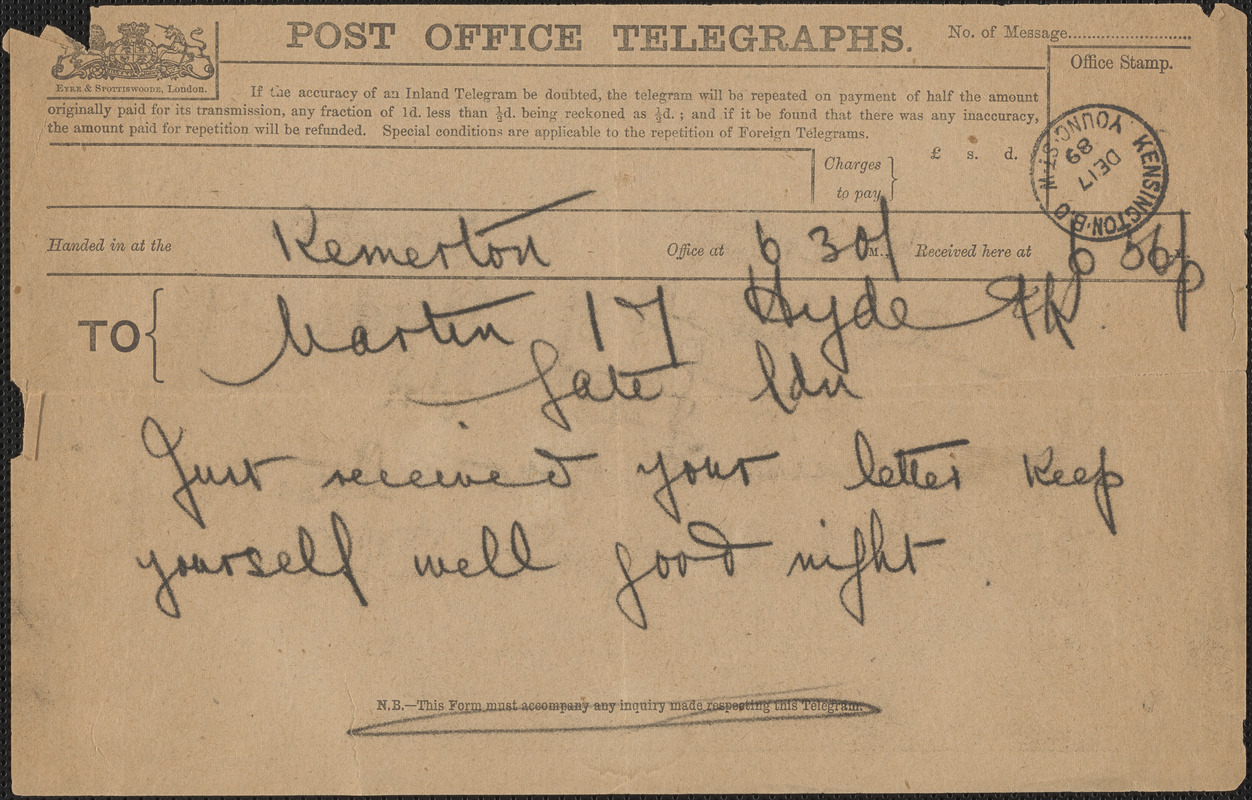 POST OFFICE TELEGRAPHS.
No. of Message
Office Stamp.
EYRE & SPOTTISWOODE, LONDON.
If the accuracy of an Inland Telegram be doubted, the telegram will be repeated on payment of half the amount
originally paid for its transmission, any fraction of 1d. less than ½d. being reckoned as ½d. ; and if it be found that there was any inaccuracy,
the amount paid for repetition will be refunded. Special conditions are applicable to the repetition of Foreign Telegrams.
Charges to pay
£ s. d.
KENSINGTON·B.O
YOUNG·ST·W
DE 17
89
Handed in at the Kemerton Office at 6 30 M., Received here at 6 56p
TO Martin 17 Hyde Pk
Gate Ldn
Just received your letter keep
yourself well good night
N.B.—This Form must accompany any inquiry made respecting this Telegram.